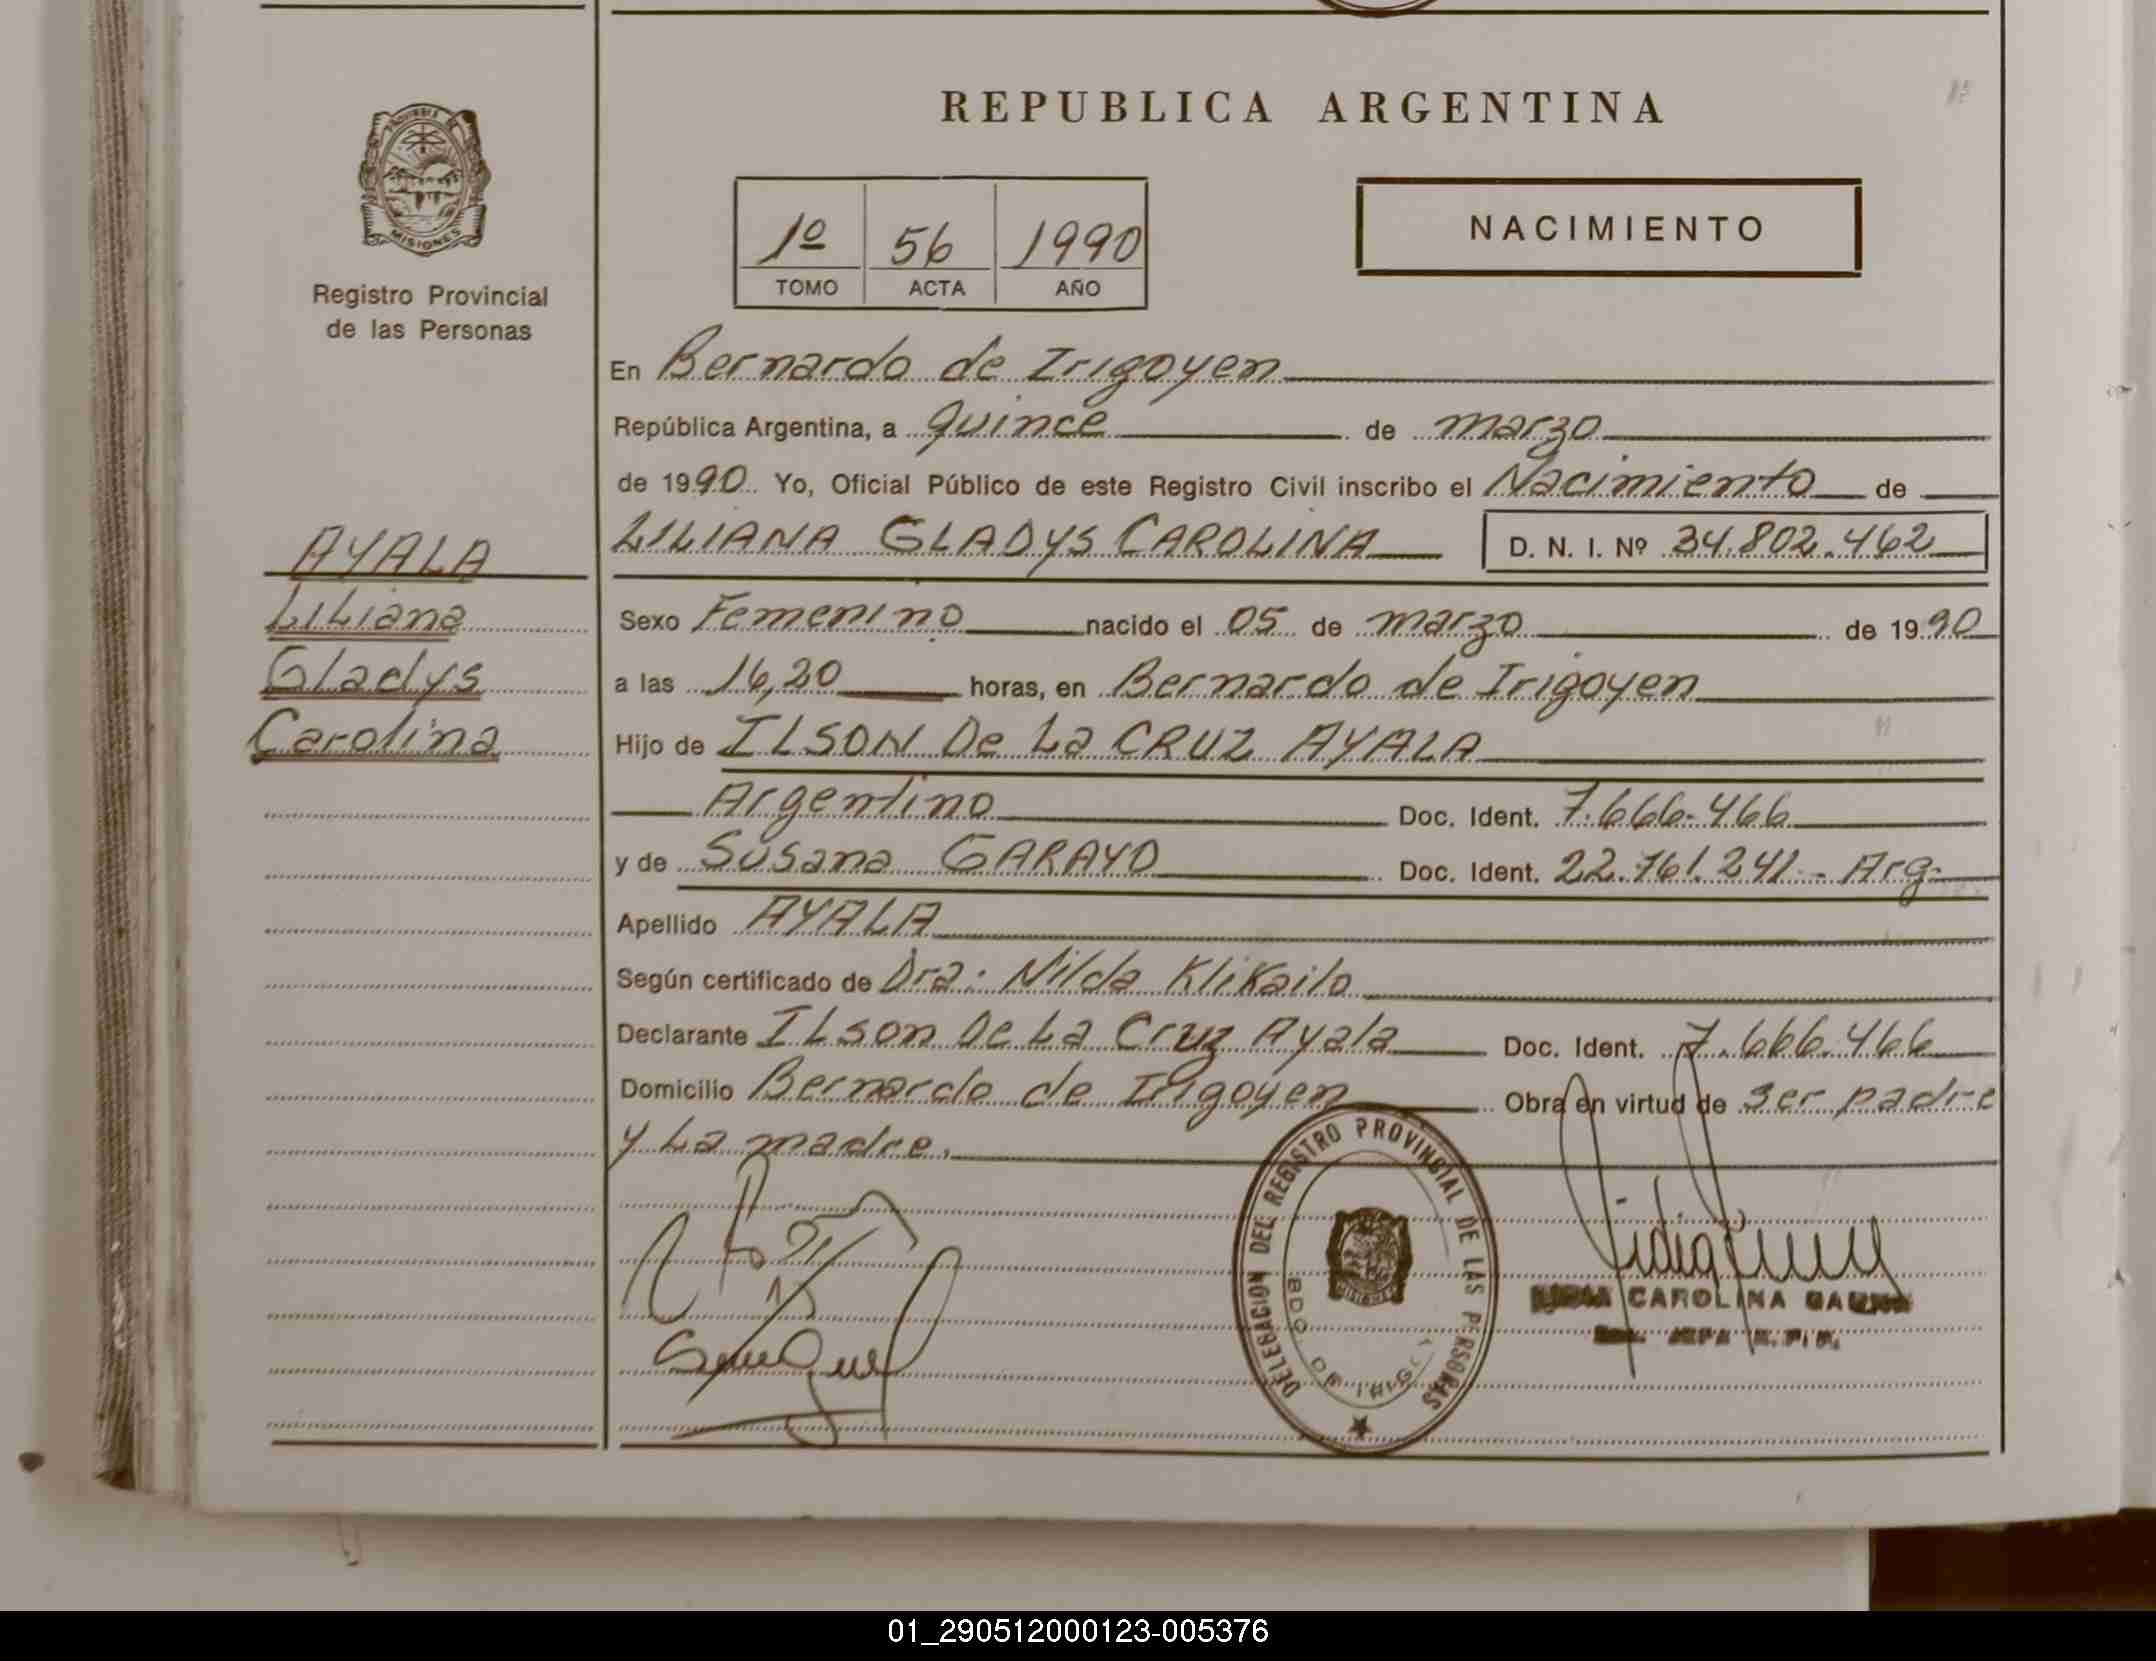 REPUBLICA ARGENTINA
PROVINCIA DE
MISIONES
Registro Provincial
de las Personas
1º 56 1990
TOMO ACTA AÑO
NACIMIENTO
En Bernardo de Irigoyen
República Argentina, a quince de marzo
de 1990 Yo, Oficial Público de este Registro Civil inscribo el Nacimiento de
AYALA
Liliana
Gladys
Carolina
LILIANA GLADYS CAROLINA D. N. I. Nº 34.802.462
Sexo Femenino nacido el 05 de marzo de 1990
a las 16,20 horas, en Bernardo de Irigoyen
Hijo de ILSON De La CRUZ AYALA
Argentino Doc. Ident. 7.666.466
y de Susana GARAYO Doc. Ident. 22.761.241 - Arg.
Apellido AYALA
Según certificado de Dra: Nilda Klikailo
Declarante ILson De La Cruz Ayala Doc. Ident. 7.666.466
Domicilio Bernardo de Irigoyen Obra en virtud de ser padre
y La madre.
DELEGACION DEL REGISTRO PROVINCIAL DE LAS PERSONAS
BDO DE IRIGOY
CAROLINA
JEFA
01_290512000123-005376